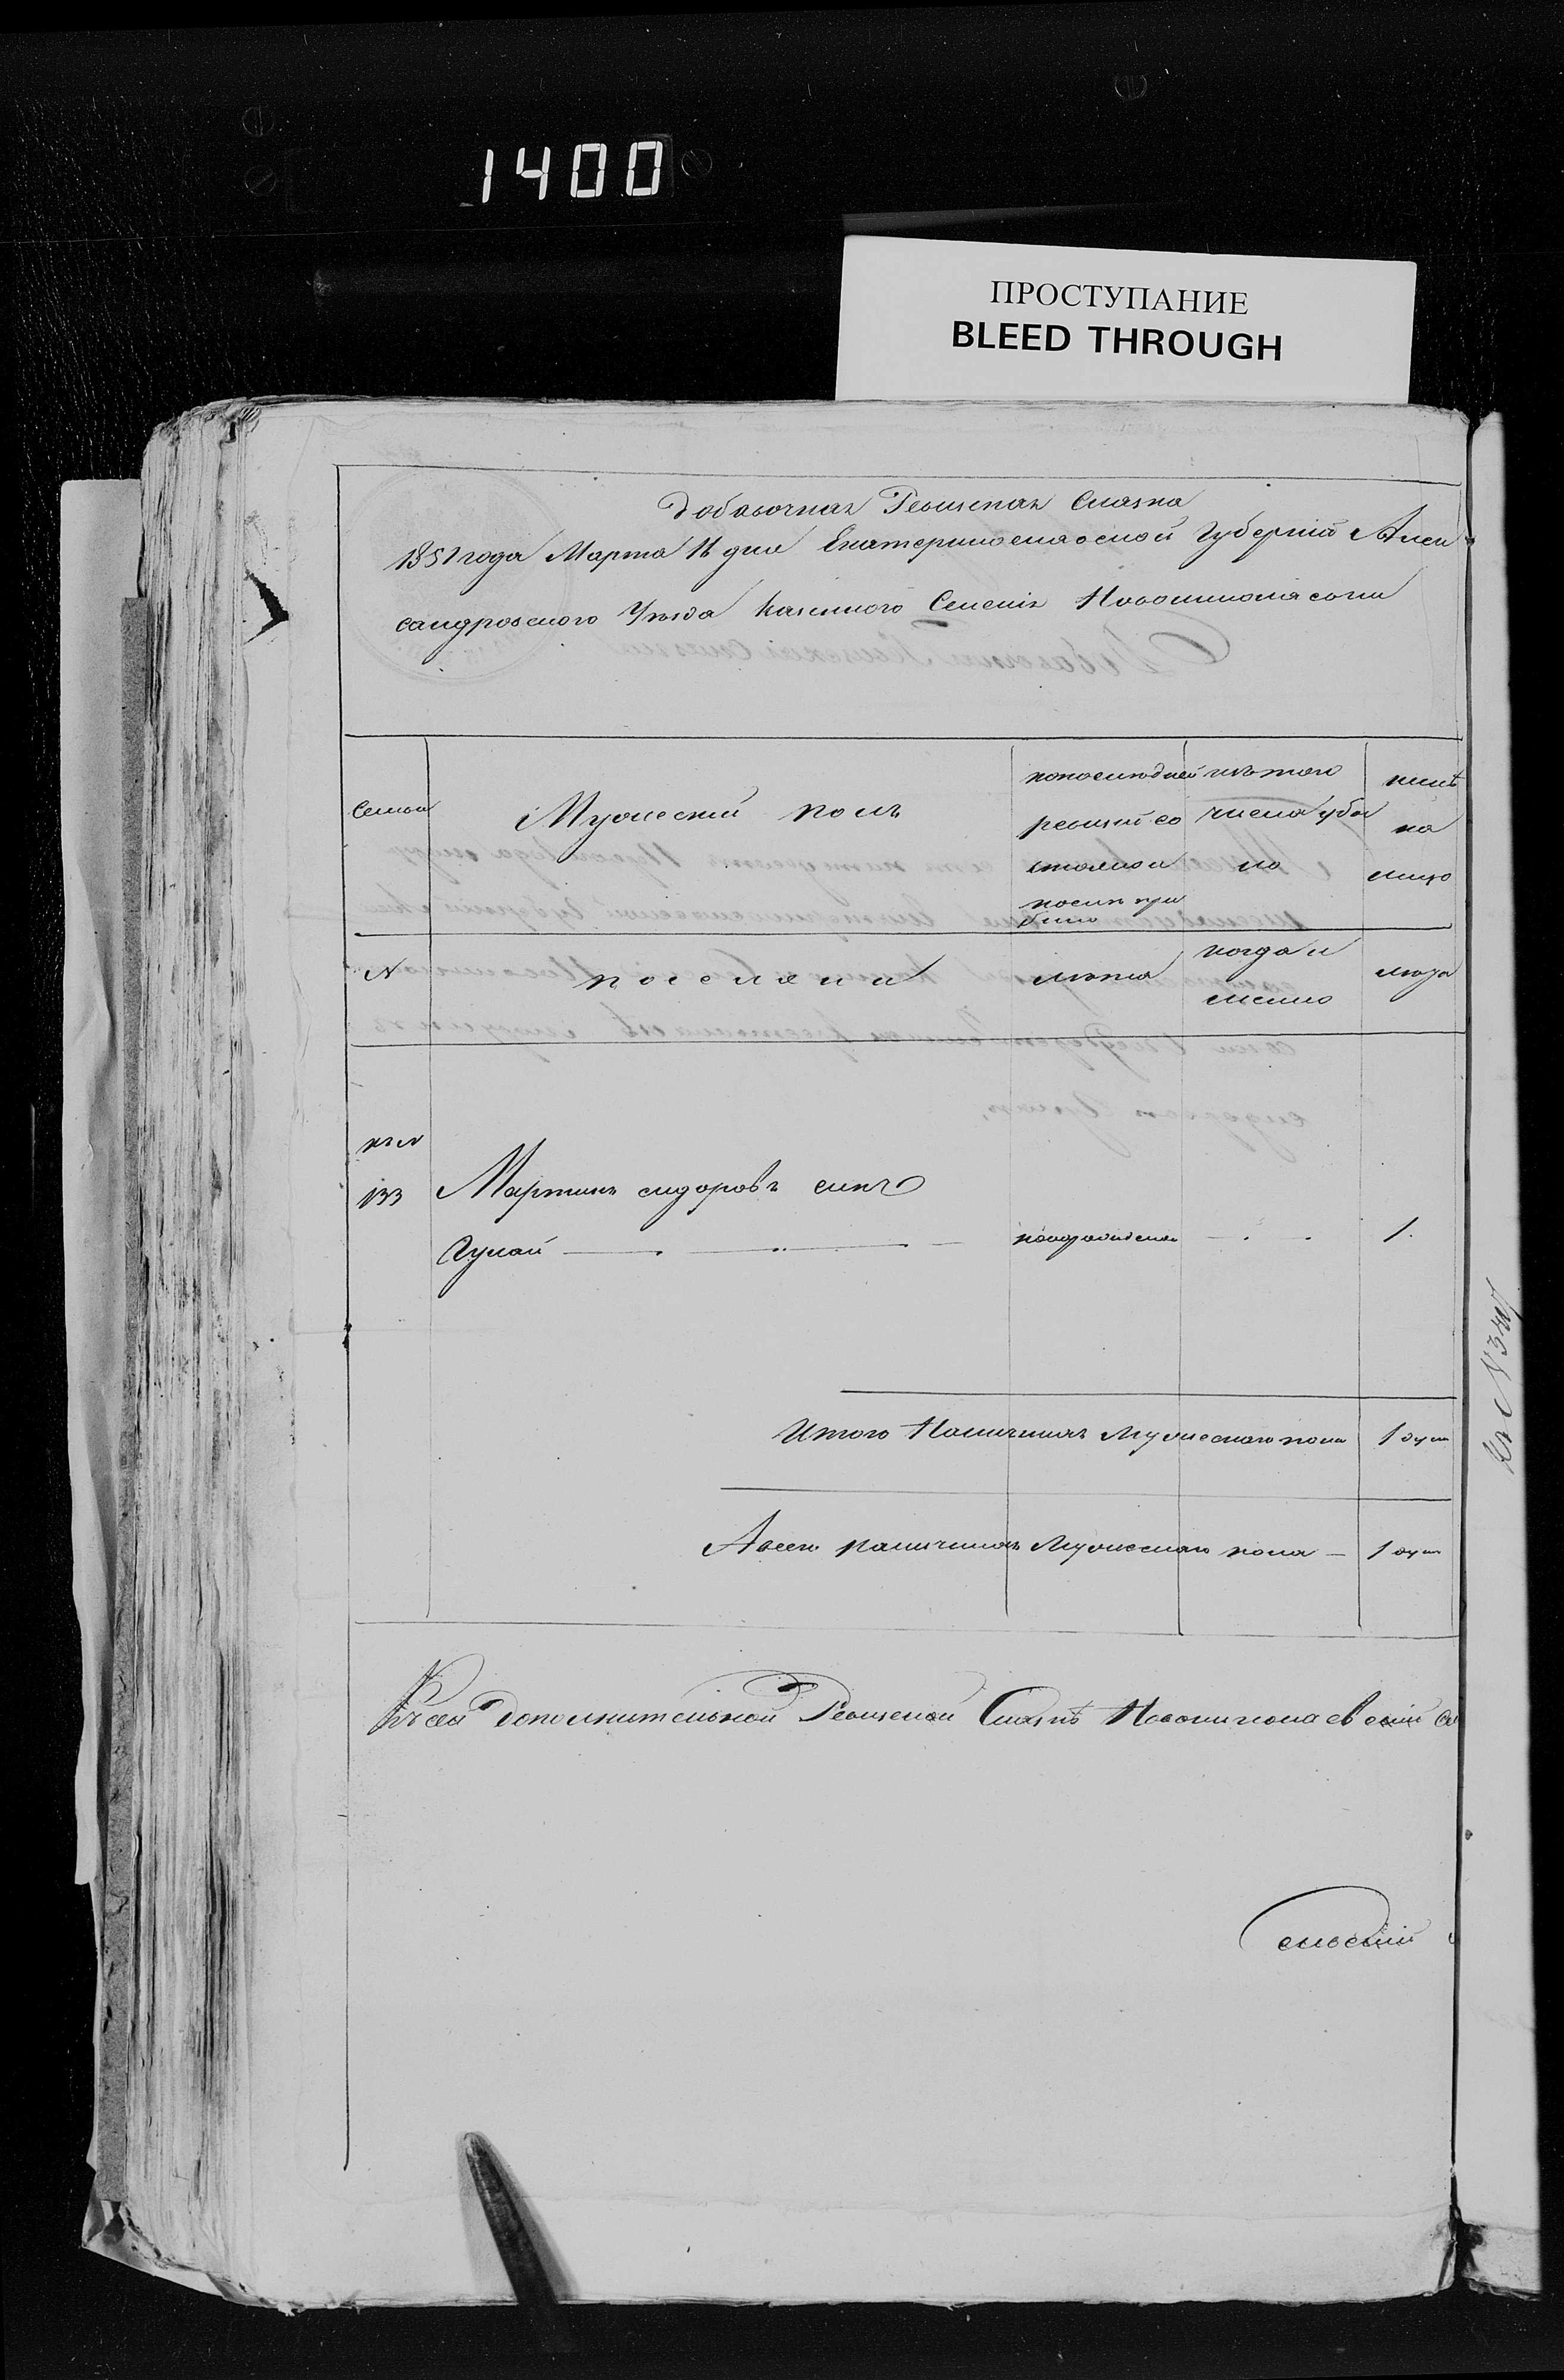 1400
ПРОСТУПАНИЕ
BLEED THROUGH
Добавочная Ревизская Сказка
1851 года Марта 16 дня Екатеринославской Губернiи Алек
сандровского Уѣзда Казенного Селенiя Новониколаевки
Семьи
Мужескiй полъ
по последней ревизiи со стояло и после при было
изъ того числа убы ло
нынѣ на лицо
N
поселяни
лѣта
когда и
имено
лѣта
къ N
133
Мартинъ сидоровъ синъ
Гулай
новорожденъ
1.
Итого Наличных Мужеского пола 1 душ
А всего наличных Мужеского пола — 1 душ
Къ сей дополнительной Ревизской Сказкѣ Новониколаевскiй
сельскiй